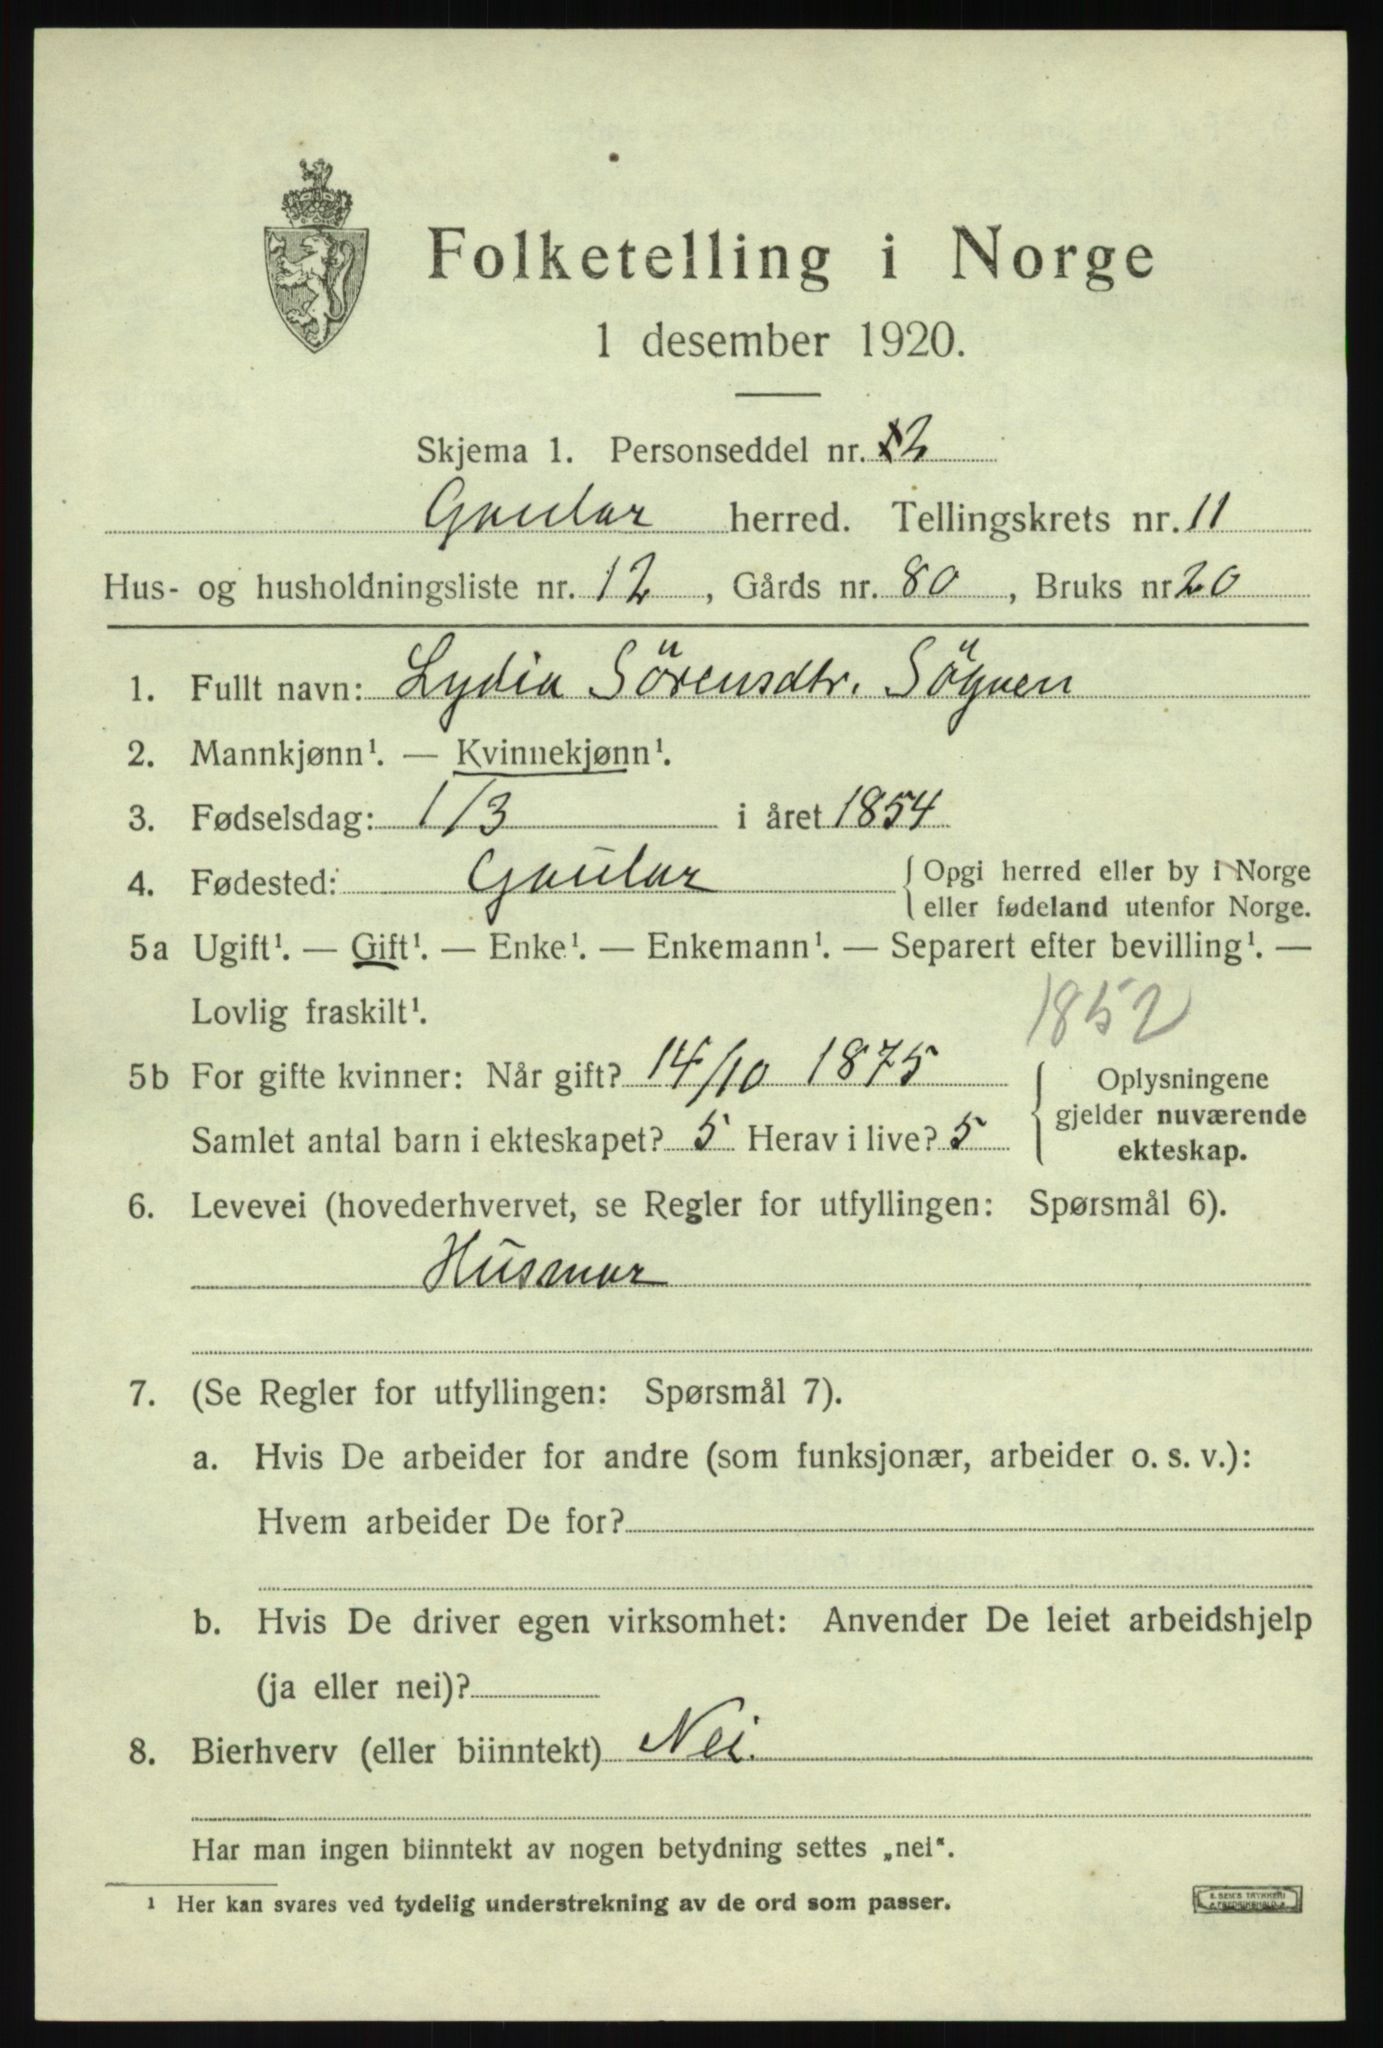 Folketelling i Norge
1 desember 1920.
Skjema 1. Personseddel nr. 2
Gaular herred. Tellingskrets nr. 11
Hus- og husholdningsliste nr. 12, Gårds nr. 80, Bruks nr 20
1. Fullt navn: Lydia Sörensdtr. Sögnen
2. Mannkjønn¹. — Kvinnekjønn¹.
3. Fødselsdag: 1/3 i året 1854
4. Fødested: Gaular { Opgi herred eller by i Norge
eller fødeland utenfor Norge.
5a Ugift¹. — Gift¹. — Enke¹. — Enkemann¹. — Separert efter bevilling¹. —
Lovlig fraskilt¹. 1852
5b For gifte kvinner: Når gift? 14/10 1875 { Oplysningene
gjelder nuværende
Samlet antal barn i ekteskapet? 5 Herav i live? 5
ekteskap.
6. Levevei (hovederhvervet, se Regler for utfyllingen: Spørsmål 6).
Husmor
7. (Se Regler for utfyllingen: Spørsmål 7).
a. Hvis De arbeider for andre (som funksjonær, arbeider o. s. v.):
Hvem arbeider De for?
b. Hvis De driver egen virksomhet: Anvender De leiet arbeidshjelp
(ja eller nei)?
8. Bierhverv (eller biinntekt) Nei.
Har man ingen biinntekt av nogen betydning settes „nei“.
¹ Her kan svares ved tydelig understrekning av de ord som passer.